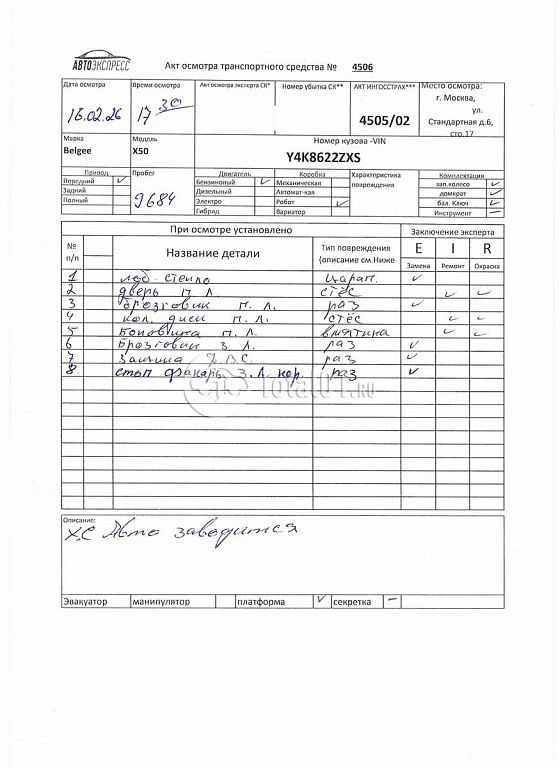 АВТОЭКСПРЕСС
Акт осмотра транспортного средства № 4506
Дата осмотра Время осмотра Акт осмотра эксперта СК* Номер убытка СК** АКТ ИНГОССТРАХ*** Место осмотра:
16.02.26 17 30 4505/02 г. Москва,
ул.
Стандартная д.6,
стр.17
Марка Модель Номер кузова -VIN
Belgee X50 Y4K8622ZXS
Привод Пробег Двигатель Коробка Характеристика повреждения Комплектация
Передний ✓ 9684 Бензиновый ✓ Механическая зап.колесо ✓
Задний Дизельный Автомат-кая домкрат ✓
Полный Электро Робот ✓ бал. Ключ ✓
Гибрид Вариатор Инструмент –
При осмотре установлено Заключение эксперта
№ п/п Название детали Тип повреждения (описание см.Ниже E I R
Замена Ремонт Окраска
1 лоб. стекло царап. ✓
2 дверь П Л. стёс ✓ ✓
3 Брозговик П. Л. раз ✓
4 кол. диск П. Л. стёс ✓ ✓
5 Боковина П. Л. вмятина ✓ ✓
6 Брозговик З Л. раз ✓
7 Защита Д.В.С. раз ✓
8 стоп фанарь З. Л. нар. раз ✓
Total01.RU
Описание:
Х.С Авто заводится
Эвакуатор манипулятор платформа ✓ секретка –